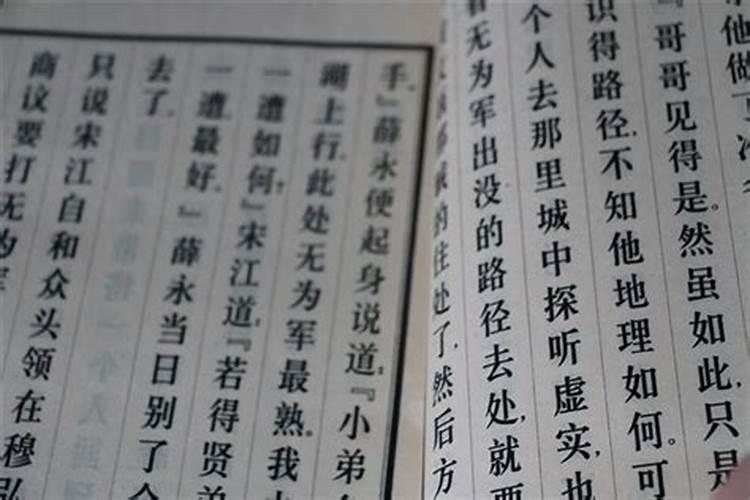 他做
『哥哥见得是。然虽如此，只是
识得路径，不知他地理如何。可
个人去那里城中探听虚实，也
无为军出没的路径去处，就要
的住处了，然后方
手。』薛永便起身说道：『小弟
湖上行，此处无为军最熟。我
一遭如何？』宋江道：『若得贤弟
一遭最好。』薛永当日别了众
去了。
只说宋江自和众头领在穆弘
商议要打无为军